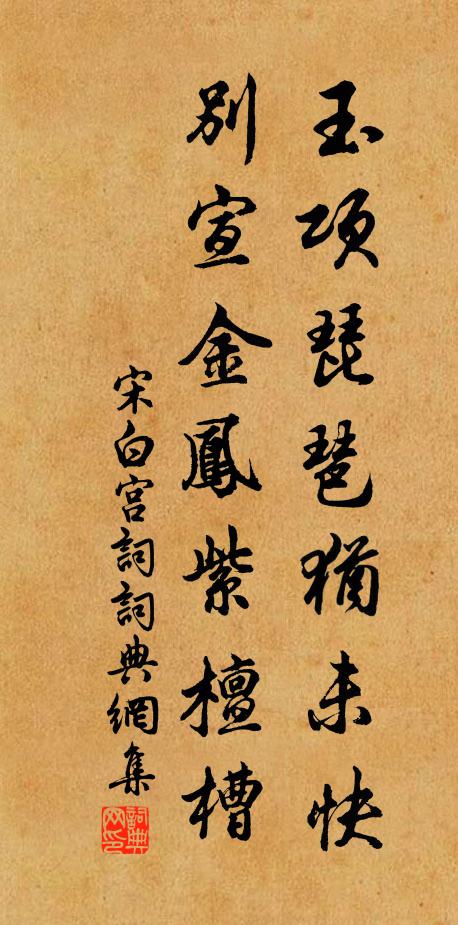 玉项琵琶猶未快
别宣金鳳紫檀槽
宋白宫詞詞典網集
詞典网印